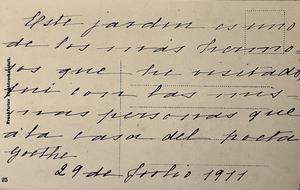 Este jardin es uno
de los más hermo-
sos que he visitado
fui con las mis-
mas personas que
á la casa del poeta
Goethe
29 de Julio 1911
25